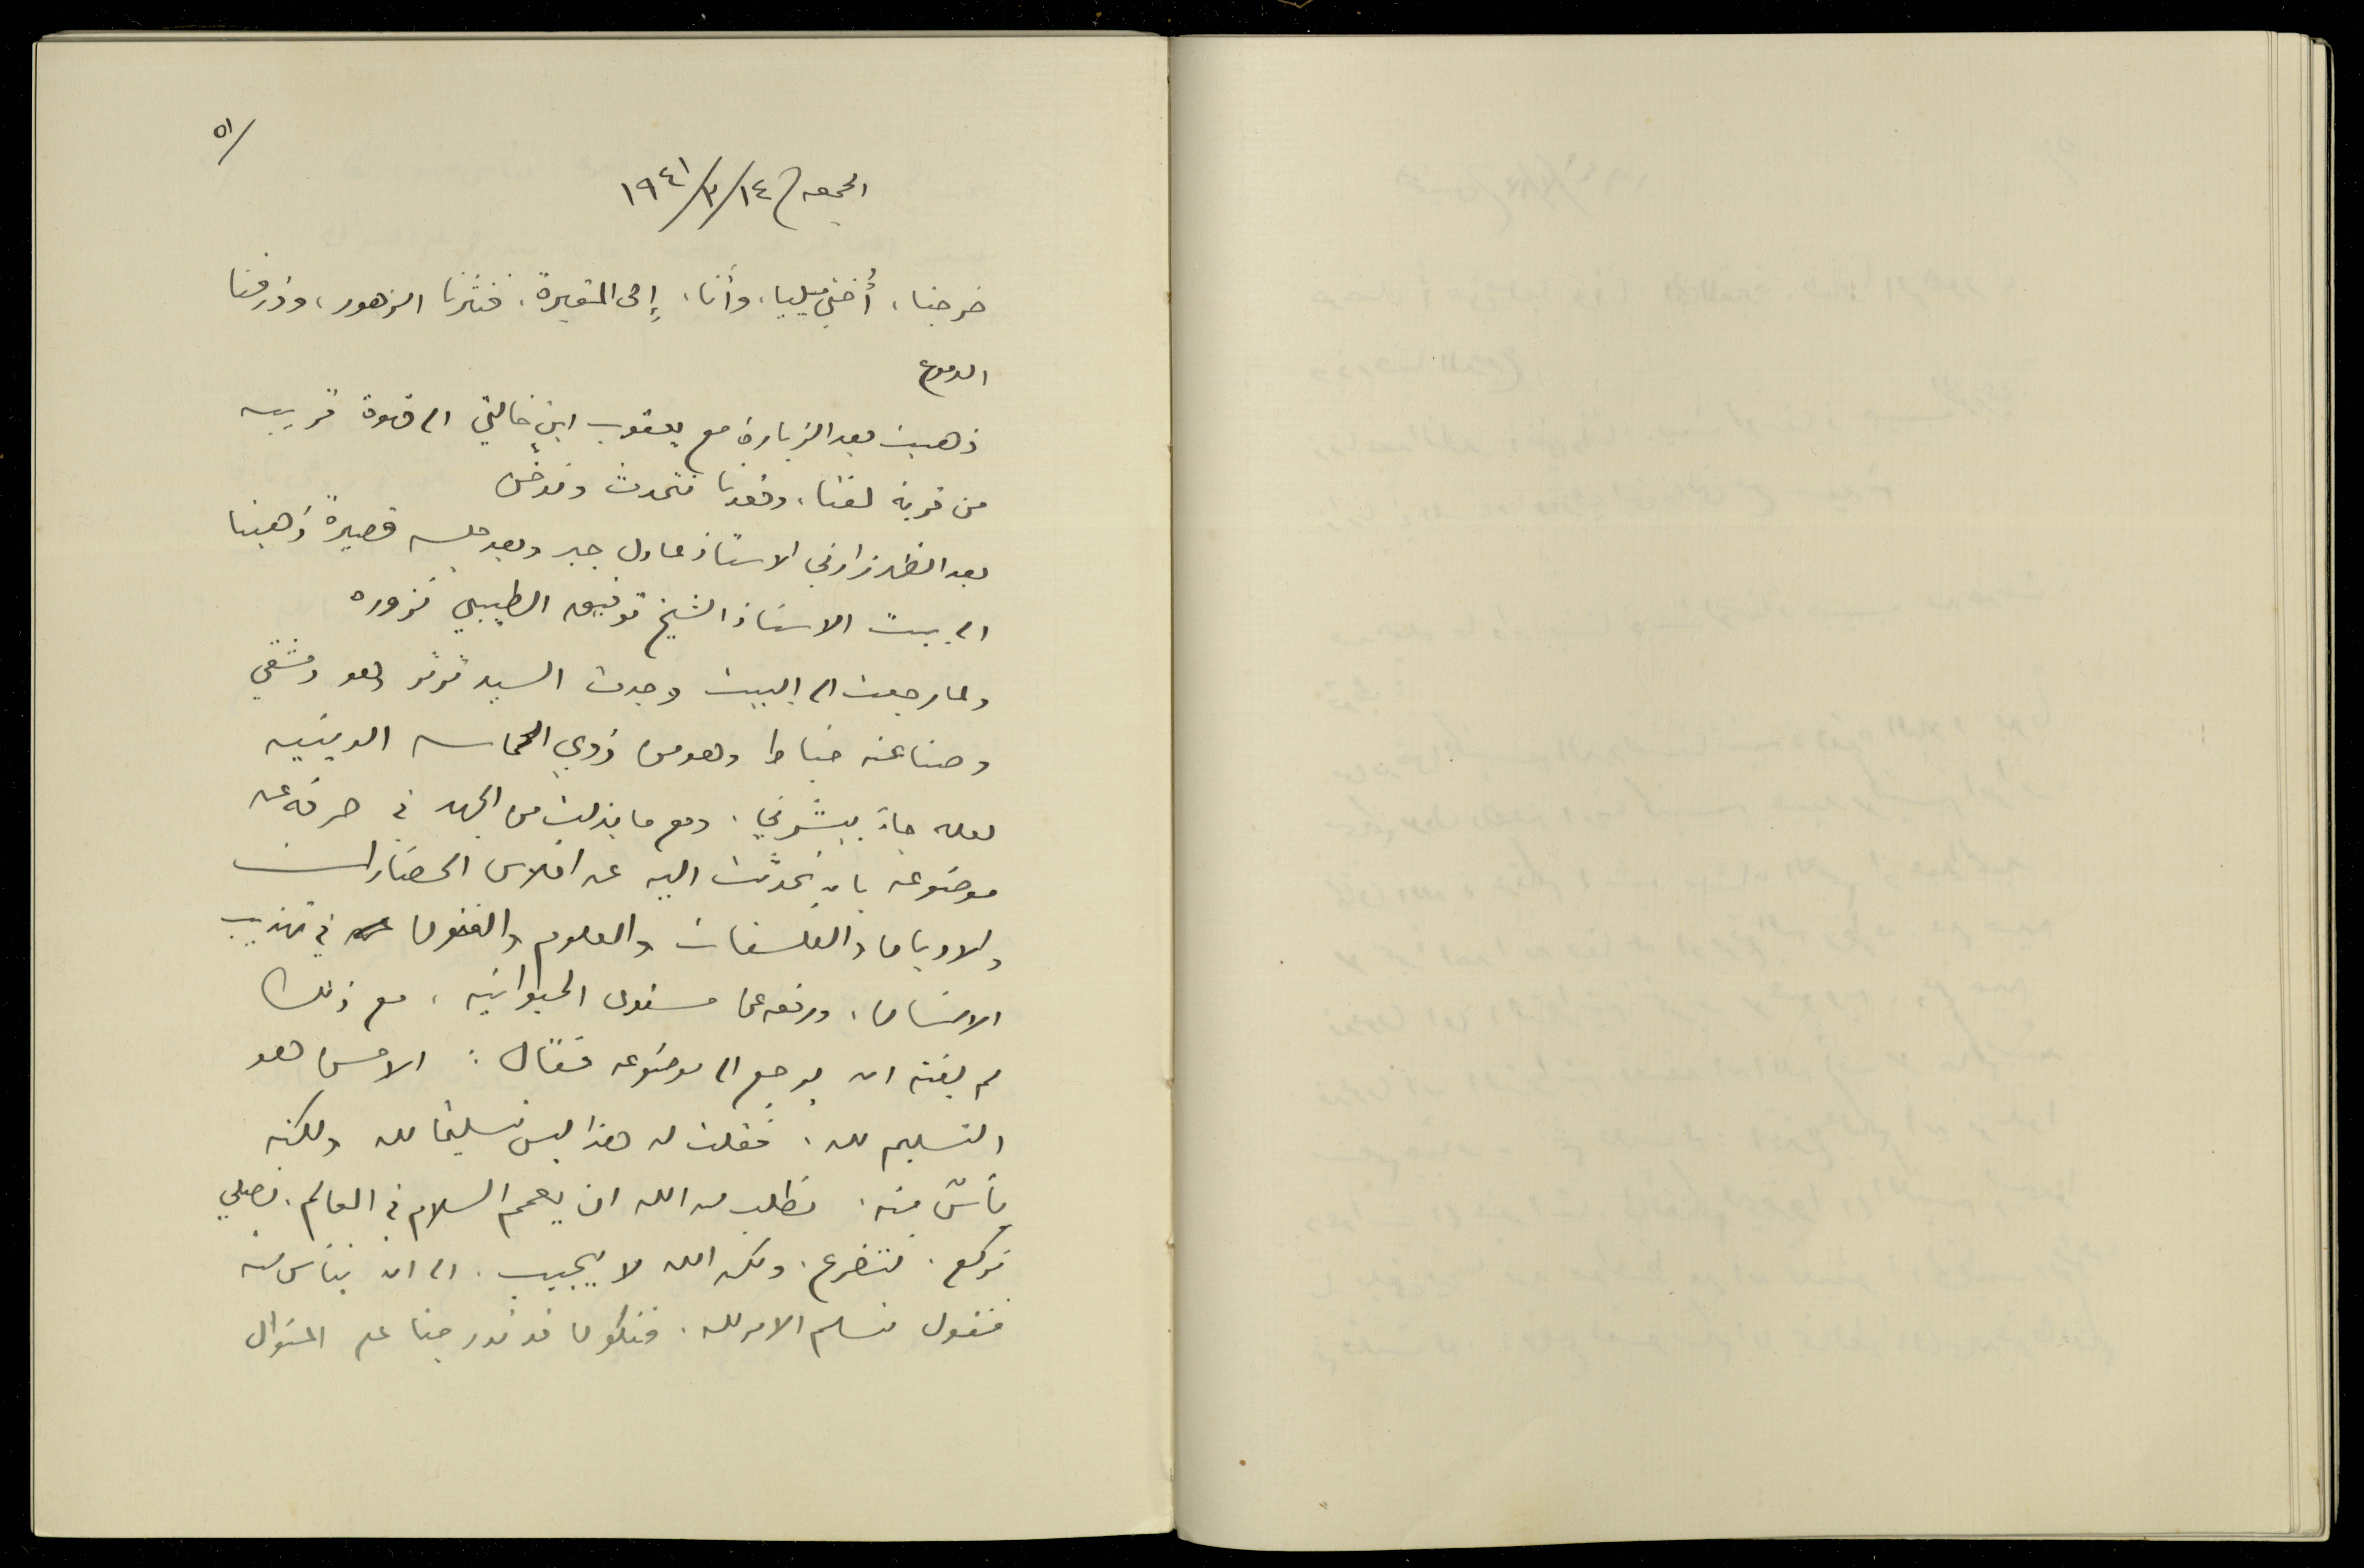 ٥١/
الجمعه ١٤/٣/١٩٤١
خرجنا، أُختي ميليا، وأنا، إلى المقبرة، فنثرنا الزهور، وذرفنا
الدموع
ذهبت بعد الزيارة مع يعقوب ابن خالتي الى قهوة قريبه
من قرية لفتا، وقعدنا نتحدث وندخّن
بعد الظهر زارني الاستاذ عادل جبر وبعد جلسه قصيرة ذهبنا
الى بيت الاستاذ الشيخ توفيق الطيبي نزوره
ولما رجعت الى البيت وجدت السيد وهو دمشقي
وصناعته خياط وهو من ذوي الحماسه الدينيه
لعله جاءَ يبشّرني. ومع ما بذلت من الجهد في حرفه عن
موضوعه بان تحدّثت اليه عن افلاس الحضارات
والاديان والفلسفات والعلوم والفنون في تهذيب
الانسان، ورفعه عن مستوى الحيوانيه، مع ذلك
لم يفته ان يرجع الى موضوعه فقال: الاحسن هو
التسليم لله. فقلت له هذا ليس تسليمًا لله ولكنه
يأسٌ منه. نطلب من الله ان يعمم السلام في العالم. نصلي
نركع. نتضرع. ولكن الله لا يجيب. الى ان نيأس منه
فنقول نسلم الامر لله. فنكون قد تدرجنا على المنوال